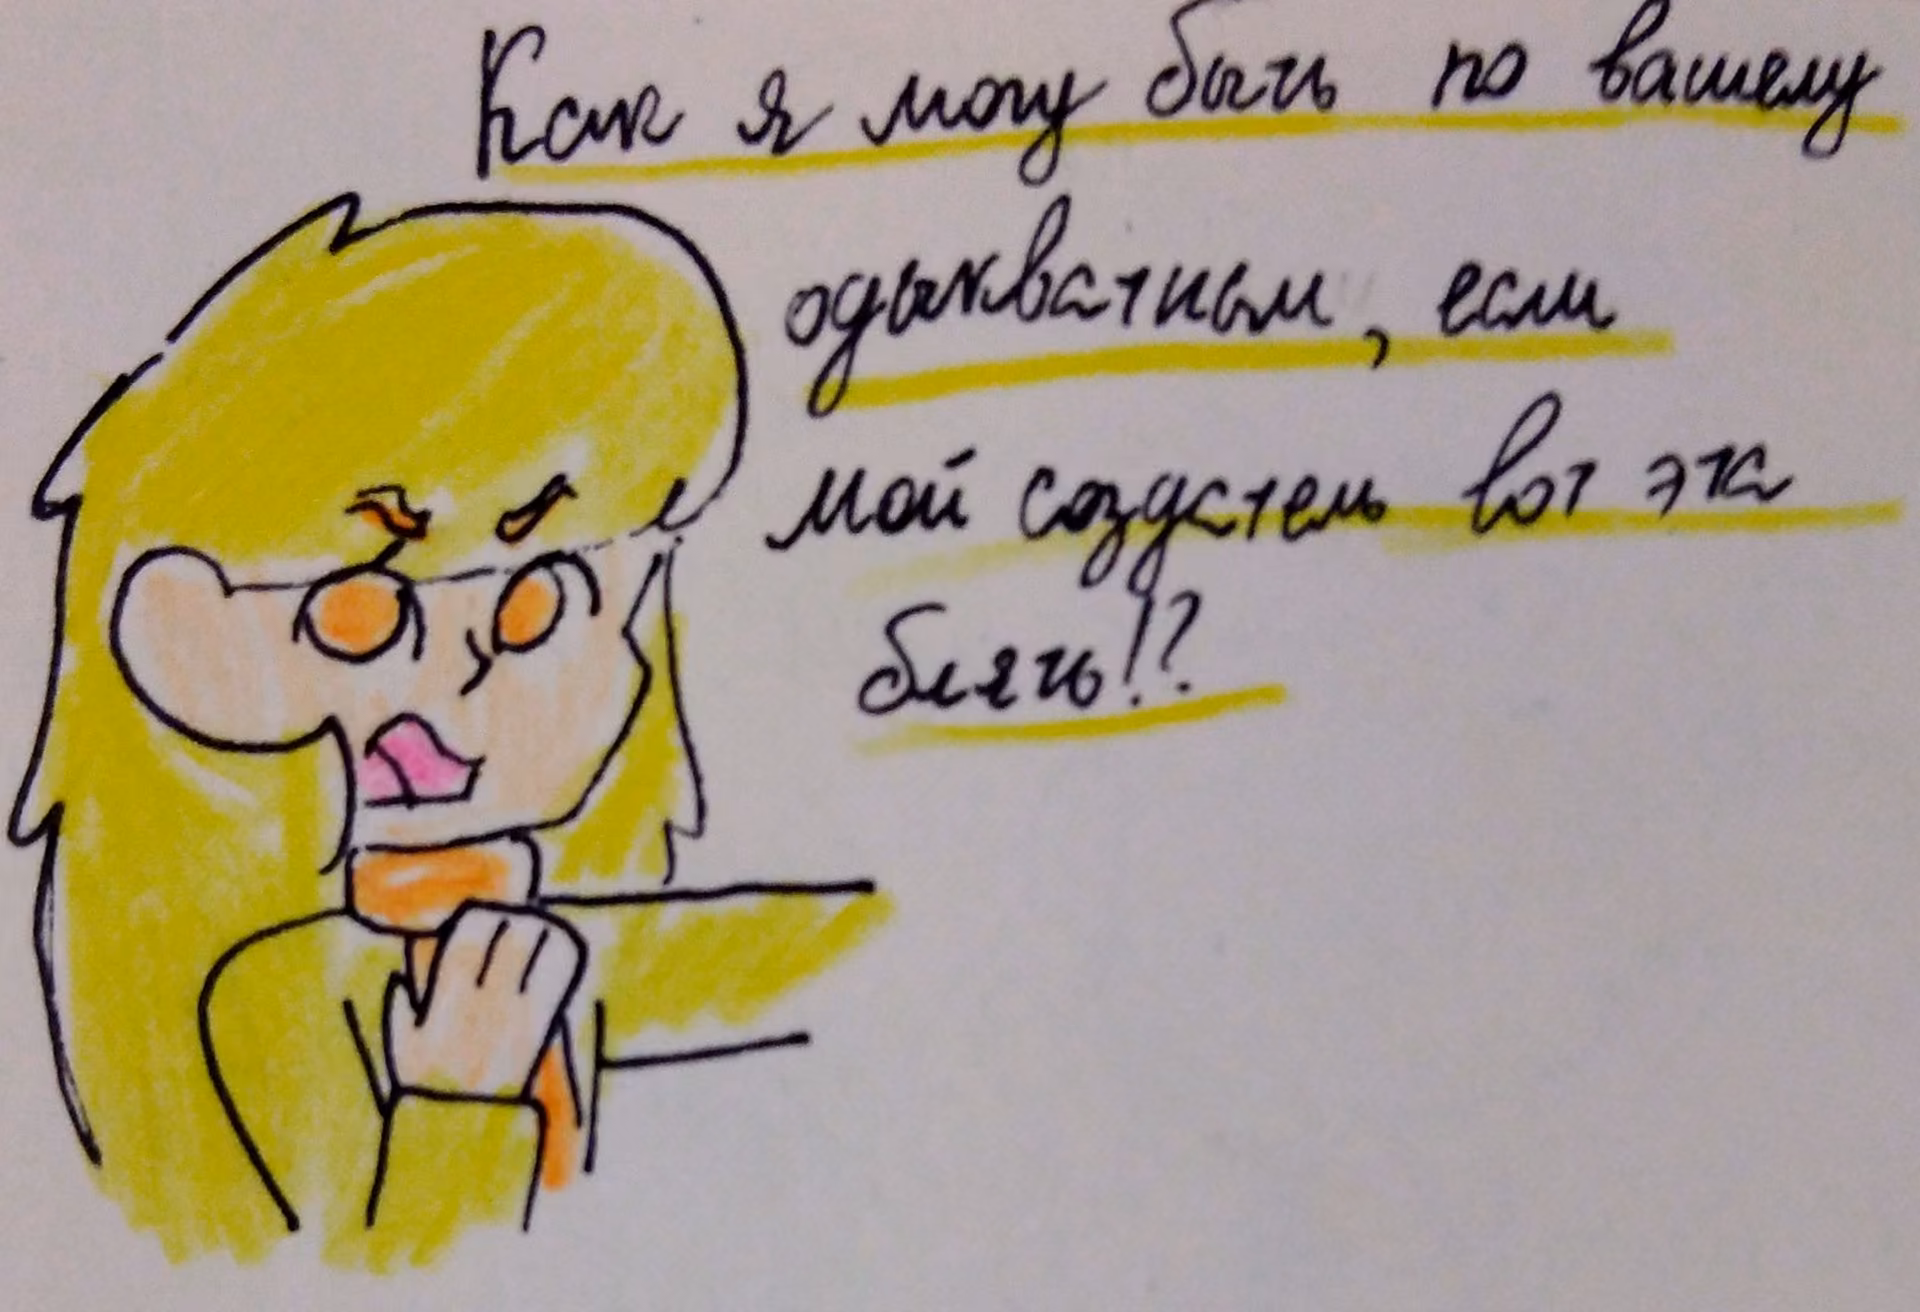 Как я могу быть по вашему
одыкватным, если
мой создатель вот эта
блять!?